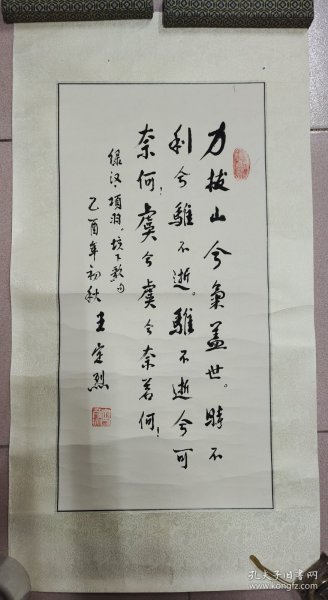 力拔山兮氣蓋世。時不
利兮騅不逝。騅不逝兮可
奈何！虞兮虞兮奈若何！
绿汉·項羽·垓下歌句
乙酉年初秋 王定烈
孔夫子旧书网
www.kongfz.com